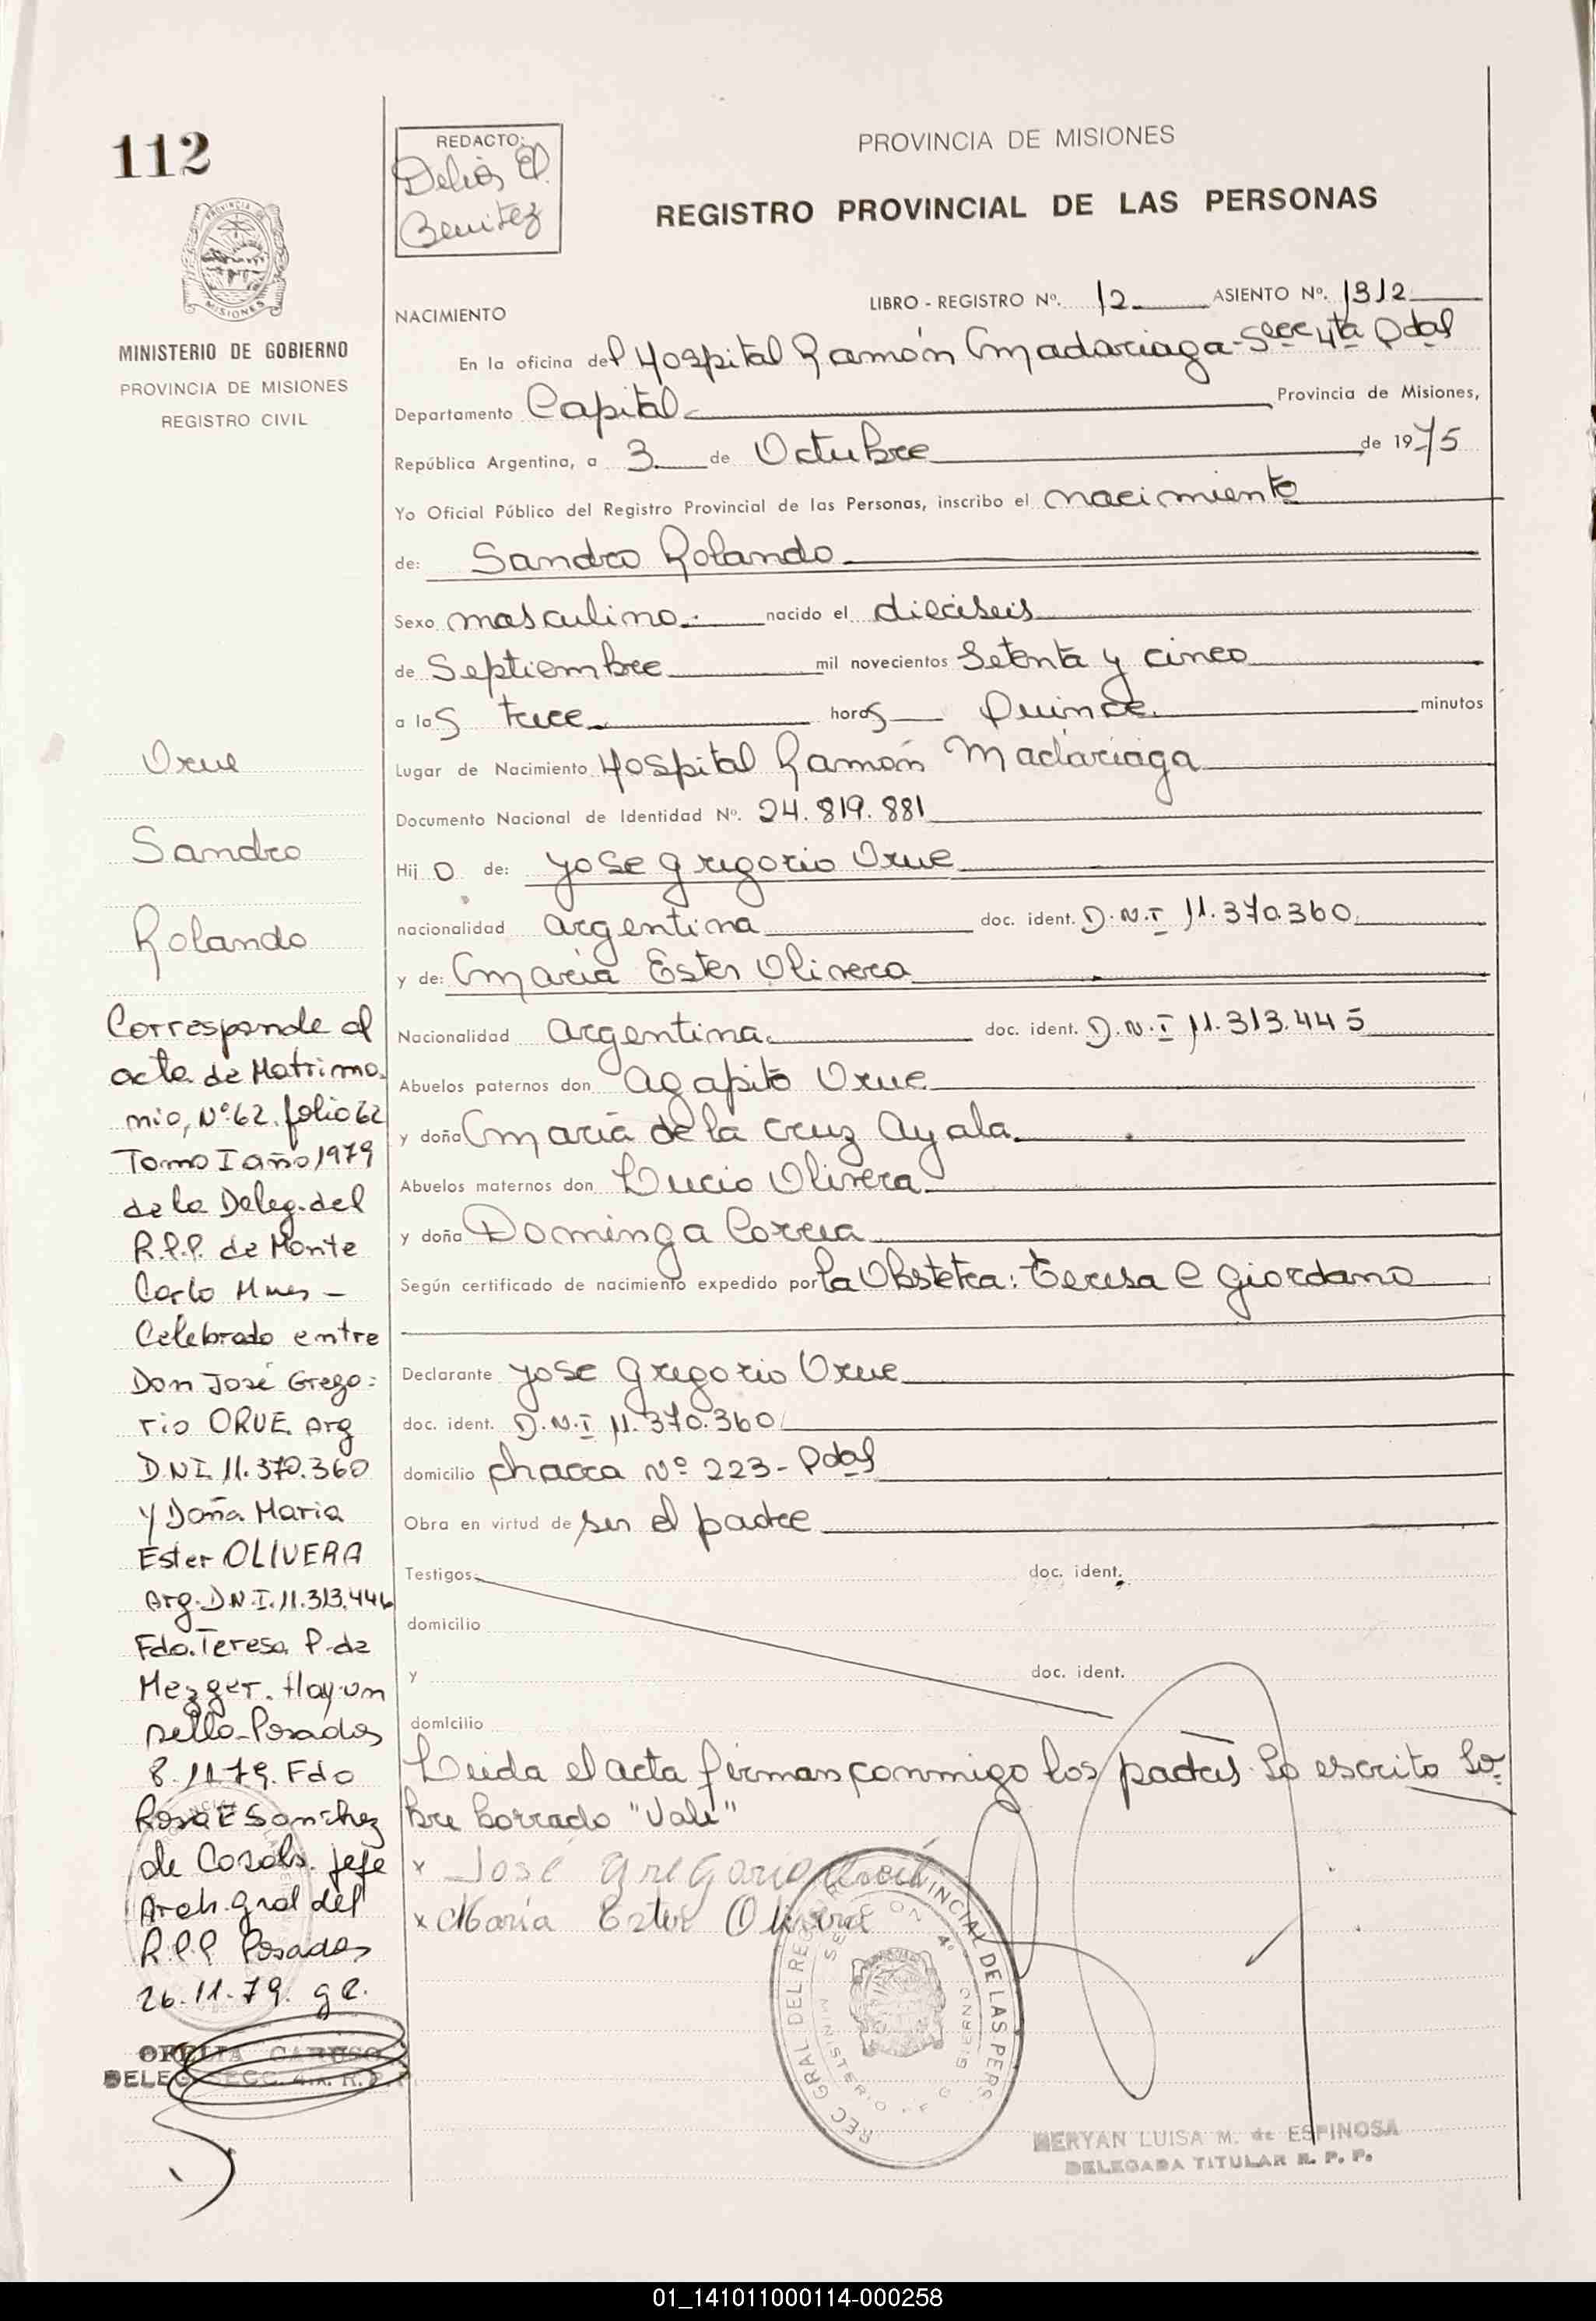 112
PROVINCIA DE
MISIONES
MINISTERIO DE GOBIERNO
PROVINCIA DE MISIONES
REGISTRO CIVIL
REDACTO:
Benitez
PROVINCIA DE MISIONES
REGISTRO PROVINCIAL DE LAS PERSONAS
NACIMIENTO
LIBRO - REGISTRO Nº. 12 ASIENTO Nº. 1312
En la oficina del Hospital Ramón Madariaga - Secc 4ta Pdas
Departamento Capital Provincia de Misiones,
República Argentina, a 3 de Octubre de 1975
Yo Oficial Público del Registro Provincial de las Personas, inscribo el nacimiento
de: Sandro Rolando
Sexo masculino nacido el dieciseis
de Septiembre mil novecientos Setenta y cinco
a las trece horas Quince minutos
Lugar de Nacimiento Hospital Ramón Madariaga
Documento Nacional de Identidad Nº. 24.819.881
Hijo de: Jose Gregorio Orue
nacionalidad argentina doc. ident. D.N.I 11.370.360
y de: Maria Ester Olivera
Nacionalidad argentina. doc. ident. D.N.I 11.313.445
Abuelos paternos don Agapito Orue
y doña Maria de la Cruz Ayala
Abuelos maternos don Lucio Olivera
y doña Dominga Correa
Según certificado de nacimiento expedido por la Obstetra: Teresa C Giordano
Declarante Jose Gregorio Orue
doc. ident. D.N.I 11.370.360
domicilio chacra Nº 223 - Pdas
Obra en virtud de ser el padre
Testigos doc. ident.
domicilio
y doc. ident.
domicilio
Leida el acta firman conmigo los padres. Lo escrito so-
bre borrado "Vale"
x José Gregorio Orué
x María Ester Olivera
REC GRAL DEL REGISTRO PROVINCIAL DE LAS PERS.
SECCION 4ª
MINISTERIO DE GOBIERNO
MERYAN LUISA M. de ESPINOSA
DELEGADA TITULAR R. P. P.
Orue
Sandro
Rolando
Corresponde al
acta de Matrimo-
nio, Nº 62. folio 62
Tomo I año 1979
de la Deleg. del
R.P.P. de Monte
Carlo Mnes -
Celebrado entre
Don José Grego=
rio ORUE. Arg
D.N.I. 11.370.360
y Doña Maria
Ester OLIVERA
Arg. D.N.I. 11.313.446
Fdo. Teresa P. de
Mezger. Hay un
sello - Posadas
8.11.79. Fdo
Rosa E Sanchez
de Cosals. jefe
Arch. gral del
R.P.P Posadas
26.11.79.
OFELIA CARUSO
DELEG. SECC. 4ta. R.P.P.
01_141011000114-000258